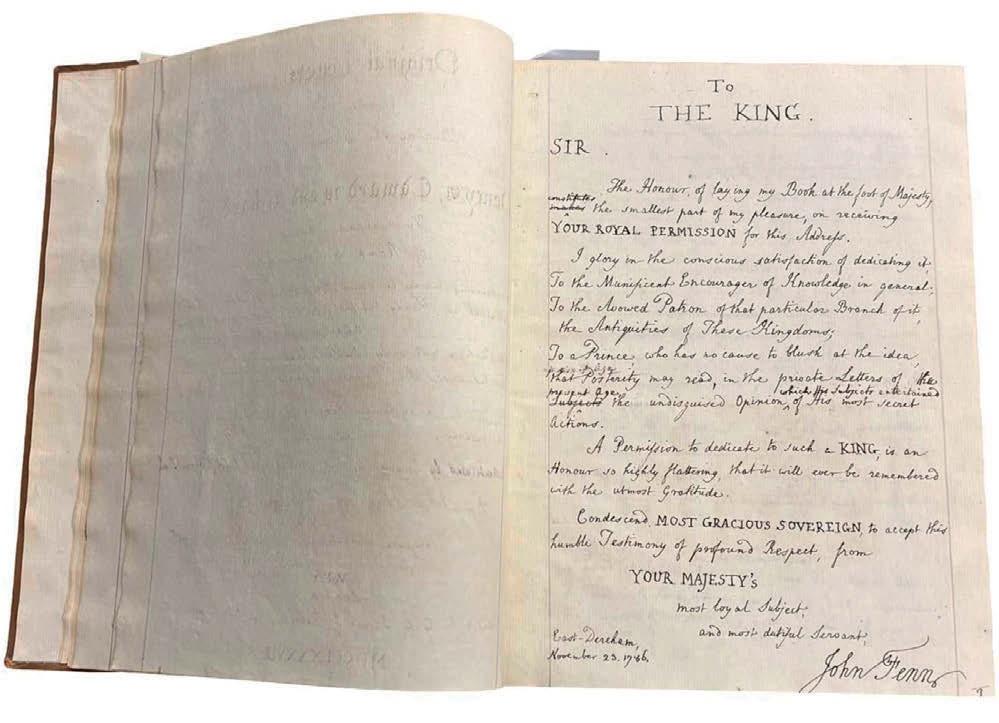 To
THE KING.
SIR.
The Honour, of laying my Book at the foot of Majesty,
constitutes
makes the smallest part of my pleasure, on receiving
YOUR ROYAL PERMISSION for this Address.
I glory in the conscious satisfaction of dedicating it,
To the Munificent Encourager of Knowledge in general;
To the Avowed Patron of that particular Branch of it,
the Antiquities of These Kingdoms;
To a Prince, who has no cause to blush at the idea,
that Posterity may read, in the private Letters of the
present age, which His Subjects entertained
Subjects the undisguised Opinion, of His most secret
Actions.
A Permission to dedicate to such a KING, is an
Honour so highly flattering, that it will ever be remembered
with the utmost Gratitude.
Condescend, MOST GRACIOUS SOVEREIGN, to accept this
humble Testimony of profound Respect, from
YOUR MAJESTY's
most loyal Subject,
and most dutiful Servant,
East-Dereham,
November 23. 1786.
John Fenn